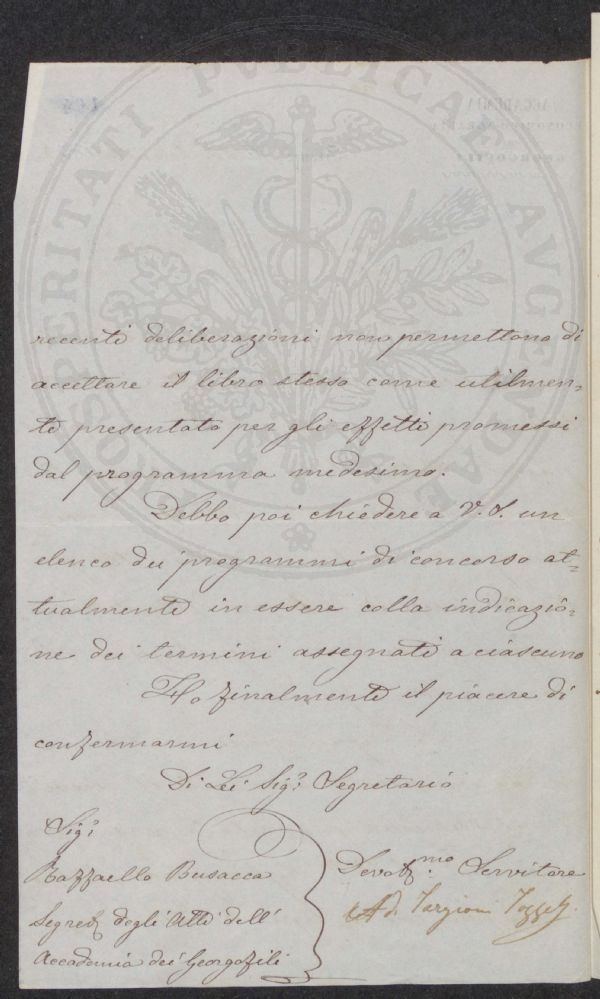 PROSPERITATI PUBLICAE AUGENDAE
recenti deliberazioni non permettono di
accettare il libro stesso come utilmen=
te presentato per gli effetti promessi
dal programma medesimo.
Debbo poi chiedere a V. S. un
elenco dei programmi di concorso at=
tualmente in essere colla indicazio=
ne dei termini assegnati a ciascuno
Ho finalmente il piacere di
confermarmi
Di Lei Sig.r Segretario
Sig.r
Raffaello Busacca
Segret.o degli Atti dell'
Accademia dei Georgofili
Devot.mo Servitore
Ad. Targioni Tozzetti